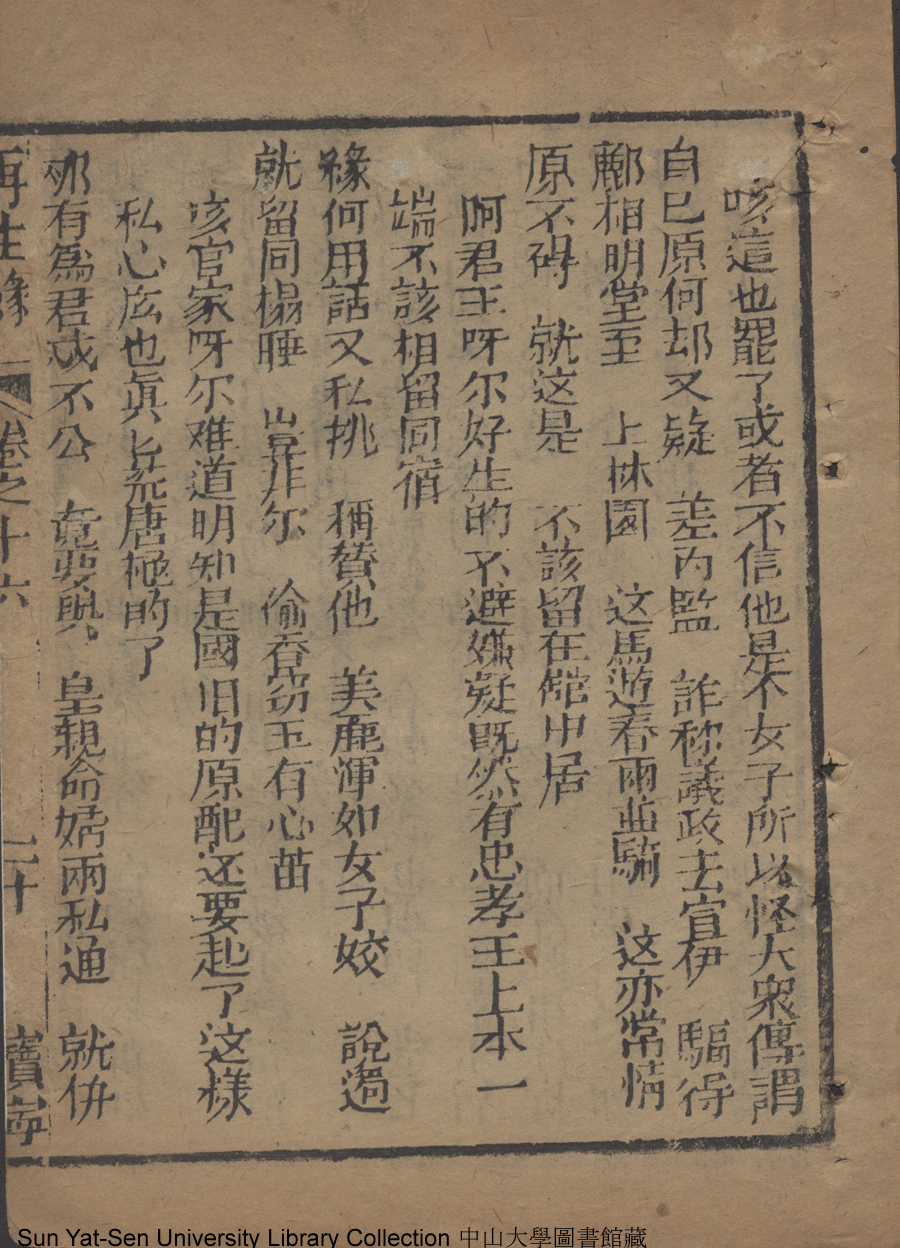 咳這也罷了或者不信他是个女子所以怪大衆傳謂
自已原何却又疑　差內監　詐称議政去宣伊　騙得
酈相明堂至　上林園　这馬遊春兩並騎　这亦常情
原不碍　就这是　不该留在舘中居
呵君王呀尔好生的不避嫌疑既然有忠孝王上本一
端不該相留同宿
緣何用話又私挑　稱賛他　美麗渾如女子姣　說过
就留同榻睡　豈非尔　偷香窃玉有心苗
咳官家呀尔难道明知是國旧的原配还要起了这様
私心庅也真乜荒唐極的了
那有爲君成不公　竟要與　皇親命婦兩私通　就併
再生緣　卷之十六　二十　寶寧
Sun Yat-Sen University Library Collection 中山大學圖書館藏